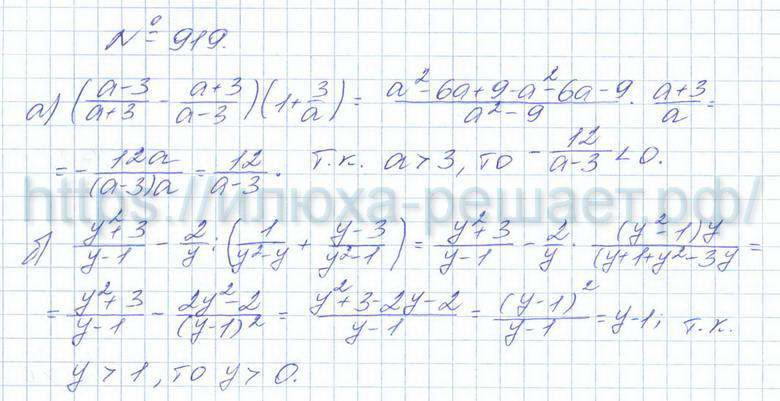 № 919.
а) ((a-3)/(a+3) - (a+3)/(a-3))(1+3/a) = (a²-6a+9-a²-6a-9)/(a²-9) · (a+3)/a =
= -12a/((a-3)a) = 12/(a-3). т.к. a>3, то -12/(a-3) < 0.
https://илюха-решает.рф/
б) (y²+3)/(y-1) - 2/y : (1/(y²-y) + (y-3)/(y²-1)) = (y²+3)/(y-1) - 2/y · ((y²-1)y)/(y+1+y²-3y =
= (y²+3)/(y-1) - (2y²-2)/(y-1)² = (y²+3-2y-2)/(y-1) = (y-1)²/(y-1) = y-1; т.к.
y > 1, то y > 0.